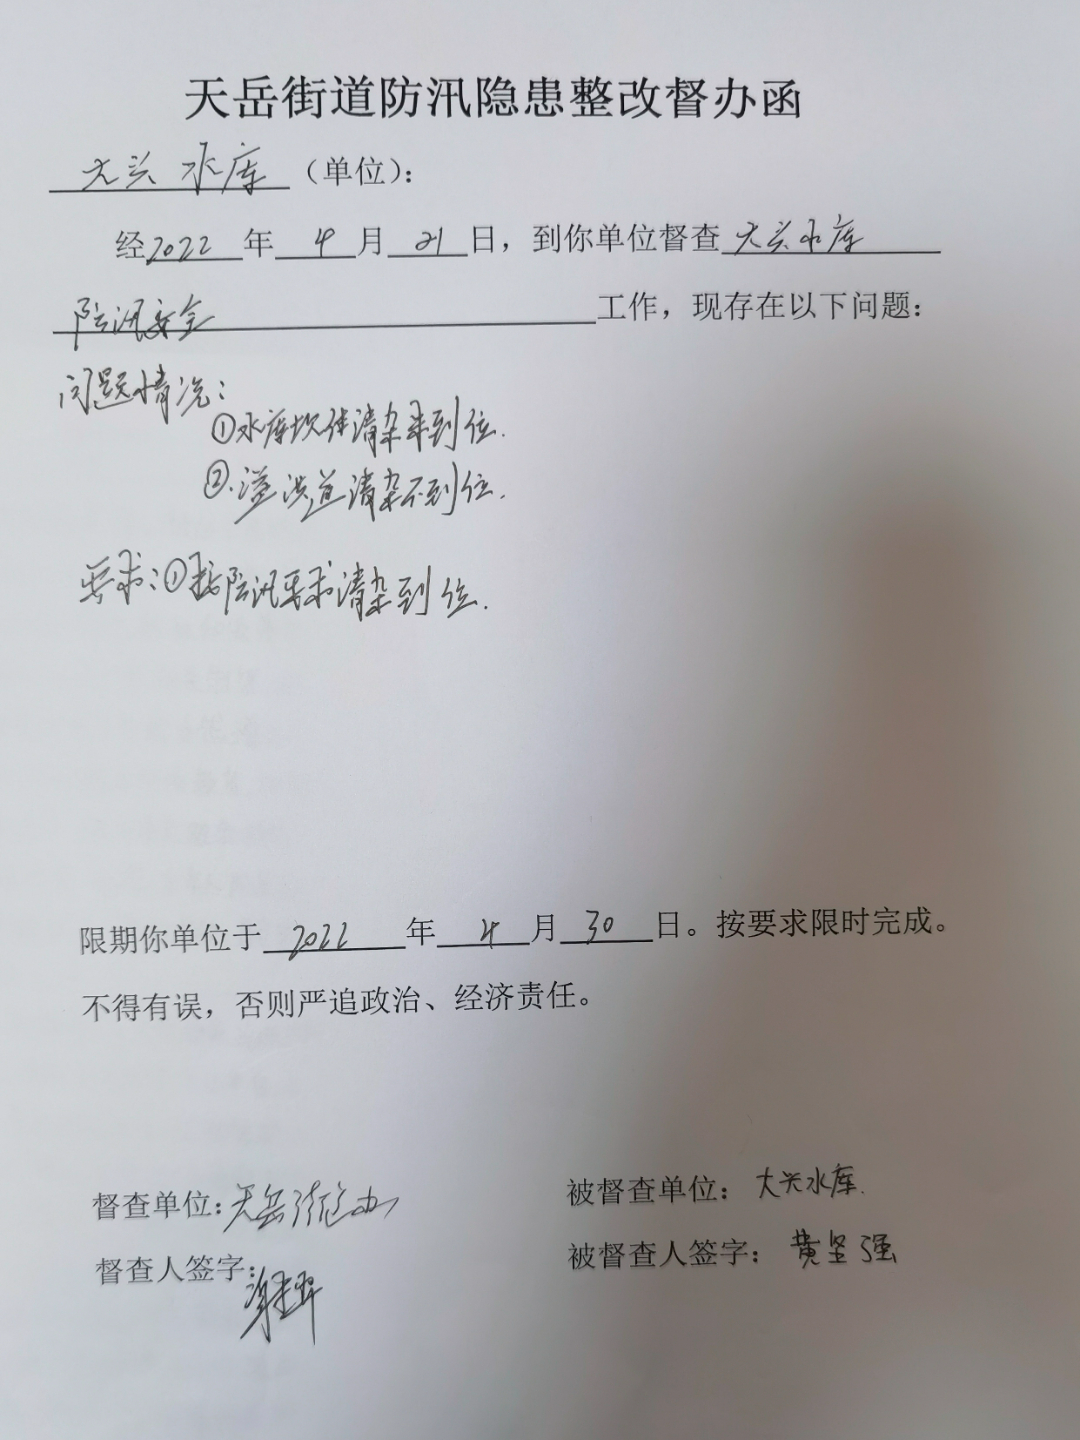 天岳街道防汛隐患整改督办函
大头水库（单位）：
经2022年4月21日，到你单位督查大头水库
防汛安全工作，现存在以下问题：
问题情况：
①水库坝体清杂未到位.
②.溢洪道清杂不到位.
要求：①按防汛要求清杂到位.
限期你单位于2022年4月30日。按要求限时完成。
不得有误，否则严追政治、经济责任。
督查单位：天岳街道办
被督查单位：大头水库.
督查人签字：
被督查人签字：黄坚强